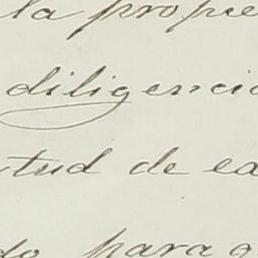 la propie
diligenci
tud de ex
do para q